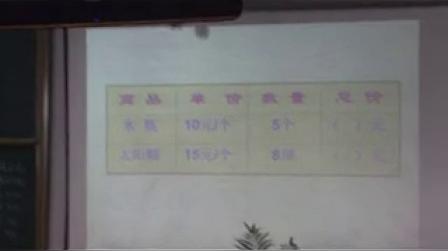 商品 单价 数量 总价
水瓶 10元/个 5个 ( )元
太阳帽 15元/个 8顶 ( )元